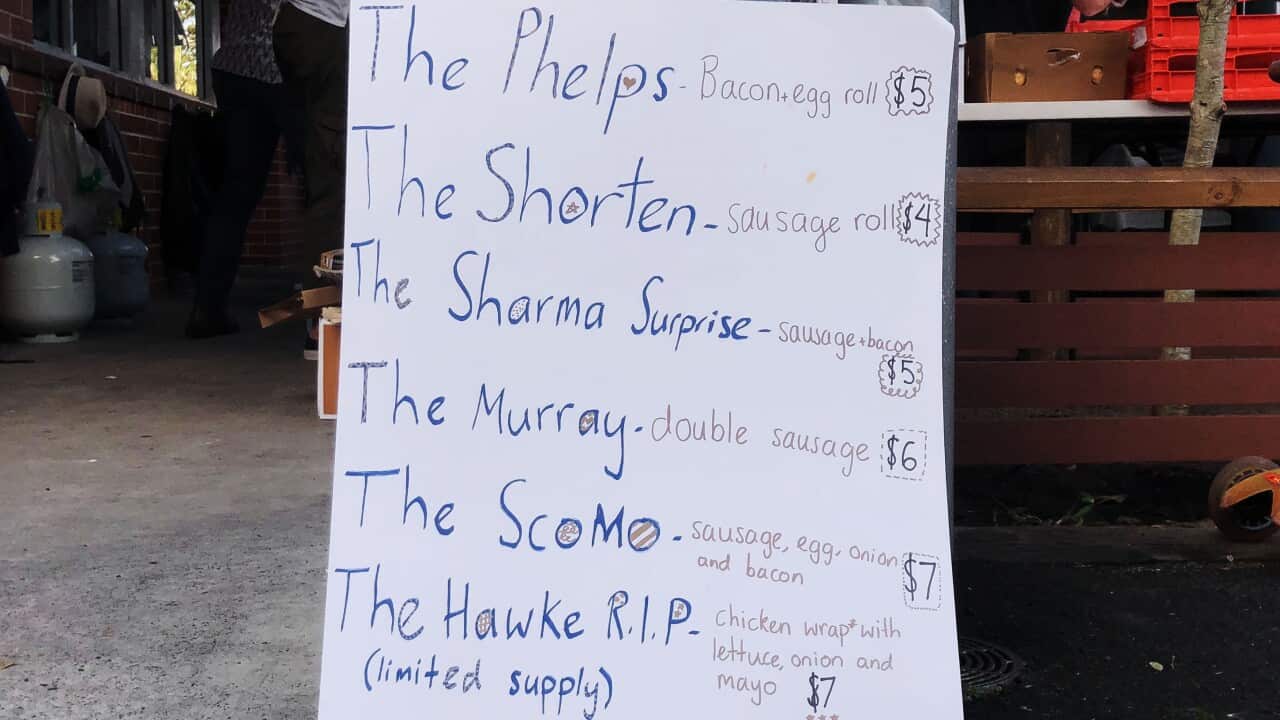 The Phelps - Bacon+egg roll $5
The Shorten - sausage roll $4
The Sharma Surprise - sausage+bacon
$5
The Murray - double sausage $6
The ScoMo - sausage, egg, onion
and bacon $7
The Hawke R.I.P - chicken wrap* with
(limited supply) lettuce, onion and
mayo $7